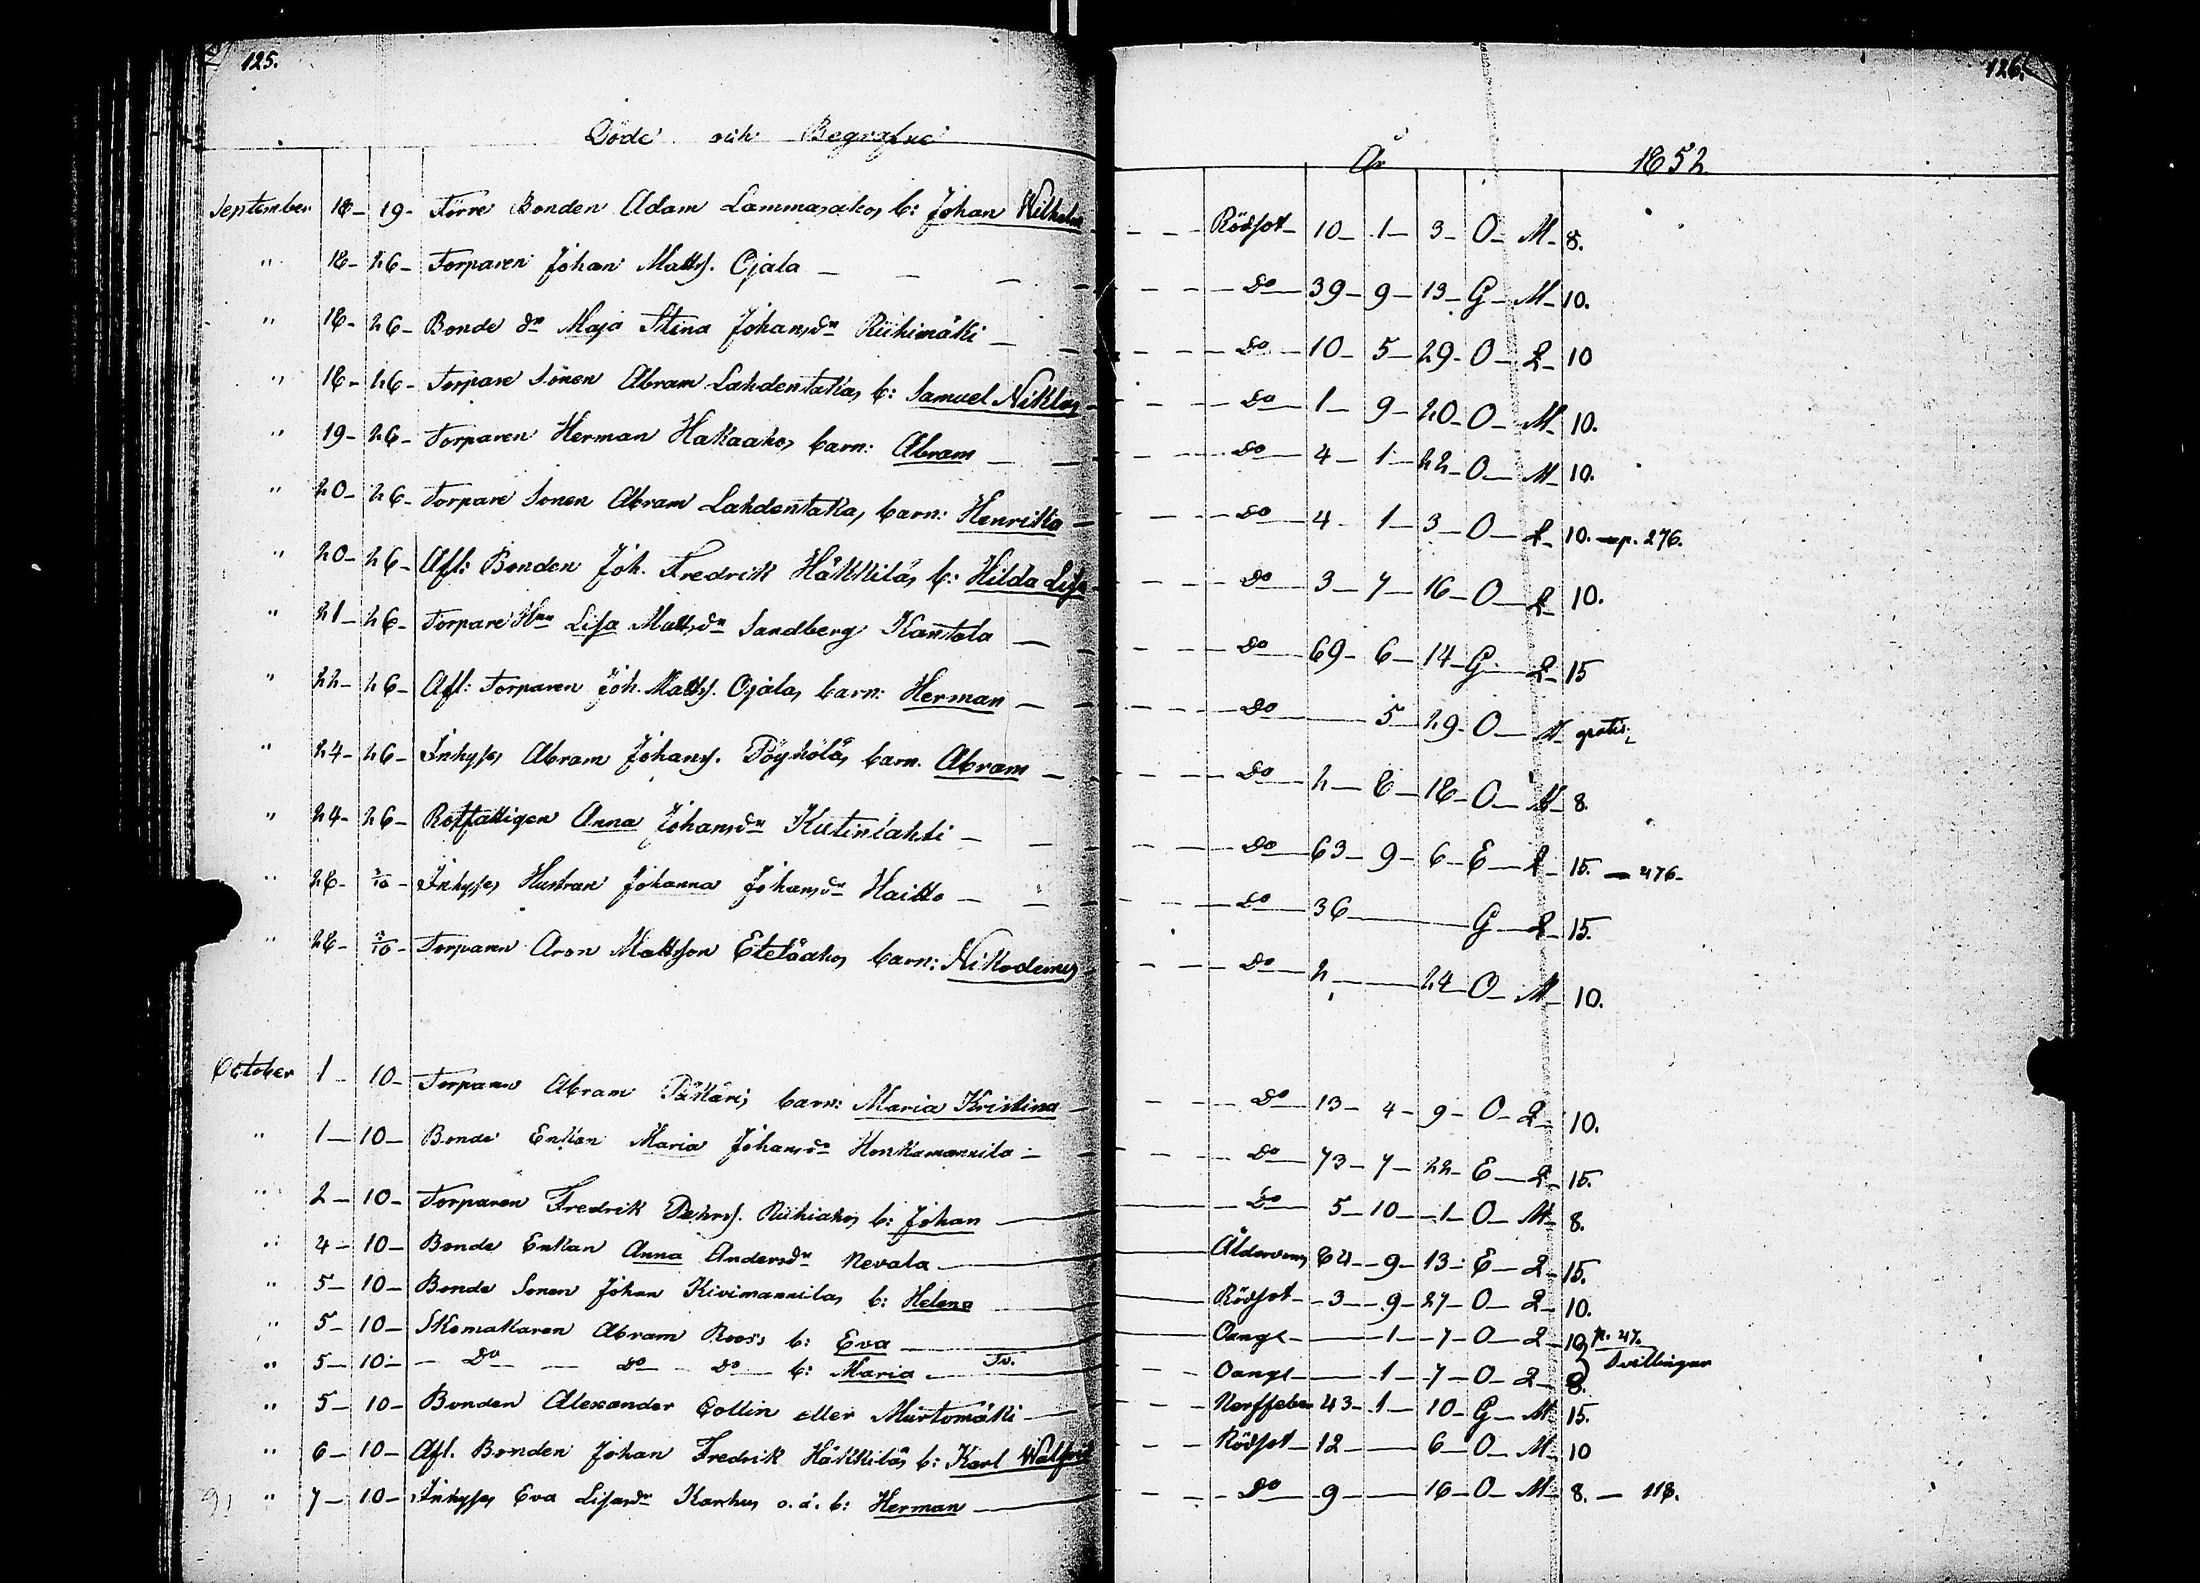 125. 126.
Döde och Begrafne År 1852
September 18 - 19 - Förre Bonden Adam Lammasaho, b: Johan Wilhelm - Rödsot - 10 - 1 - 3 - O - M - 8.
" 18 - 26 - Torparen Johan Matts. Ojala - Do - 39 - 9 - 13 - G - M - 10.
" 18 - 26 - Bonde dn Maja Stina Johansdn Riihimäki - Do - 10 - 5 - 29 - O - Q - 10
" 18 - 26 - Torpare Sonen Abram Lahdentaka, b: Samuel Niklas - Do - 1 - 9 - 20 - O - M - 10.
" 19 - 26 - Torparen Herman Hakaaho, barn: Abram - Do - 4 - 1 - 22 - O - M - 10.
" 20 - 26 - Torpare Sonen Abram Lahdentaka, barn: Henrika - Do - 4 - 1 - 3 - O - Q - 10. - p. 276.
" 20 - 26 - Afl: Bonden Joh. Fredrik Häkkilä, b: Hilda Lisa - Do - 3 - 7 - 16 - O - Q - 10.
" 21 - 26 - Torpare Hun Lisa Mattsdn Sandberg Kantola - Do - 69 - 6 - 14 - G - Q - 15
" 22 - 26 - Afl: Torparen Joh. Matts. Ojala, barn: Herman - Do - 5 - 29 - O - M - gratis
" 24 - 26 - Inhyses Abram Johans. Pöyhölä, barn. Abram - Do - 2 - 8 - 18 - O - M - 8.
" 24 - 26 - Rotfattigen Anna Johansdn Kutinlahti - Do - 63 - 9 - 6 - E - Q - 15. - 476 -
" 28 - 3/10 - Inhyses Hustrun Johanna Johansdn Haitto - Do - 36 - G - Q - 15.
" 28 - 3/10 - Torparen Aron Mattsson Eteläaho, barn: Nikodemus - Do - 2 - 24 - O - M - 10.
October 1 - 10 - Torparen Abram Päkäri, barn: Maria Kristina - Do - 13 - 4 - 9 - O - Q - 10.
" 1 - 10 - Bonde Enkan Maria Johansdn Honkamannila - Do - 73 - 7 - 22 - E - Q - 15.
" 2 - 10 - Torparen Fredrik Riihiaho, b: Johan - Do - 5 - 10 - 1 - O - M - 8.
" 4 - 10 - Bonde Enkan Anna Andersdn Nevala - Ålderdom, 84 - 9 - 13 - E - Q - 15.
" 5 - 10 - Bonde Sonen Johan Kivimannila, b: Helena - Rödsot - 3 - 9 - 27 - O - Q - 10.
" 5 - 10 - Skomakaren Abram Roos, b: Eva - Oange - 1 - 7 - O - Q - 10 p. 47.
" 5 - 10 - Do Do Do b: Maria - Tv. Oange - 1 - 7 - O - Q - 8. Tvillingar
" 5 - 10 - Bonden Alexander Collin eller Murtomäki - Nerffeber 43 - 1 - 10 - G - M - 15.
" 6 - 10 - Afl. Bonden Johan Fredrik Häkkilä, b: Karl Walfrid - Rödsot - 12 - 6 - O - M - 10
" 7 - 10 - Inhyses Eva Lisasdn Karhu, o. ä. b: Herman - Do - 9 - 16 - O - M - 8. - 118.